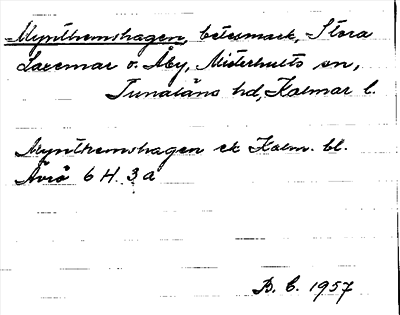 Mynthemshagen, betesmark, Stora
Laxemar o. Åby, Misterhults sn,
Tunaläns hd, Kalmar l.
Mynthemshagen ek Kalm. bl.
Ävrö 6 H. 3 a
B. C. 1957